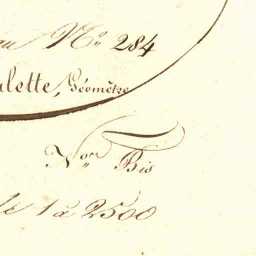 au Nº 284
lette, Géomètre
Nº Bis
de 1 à 2500